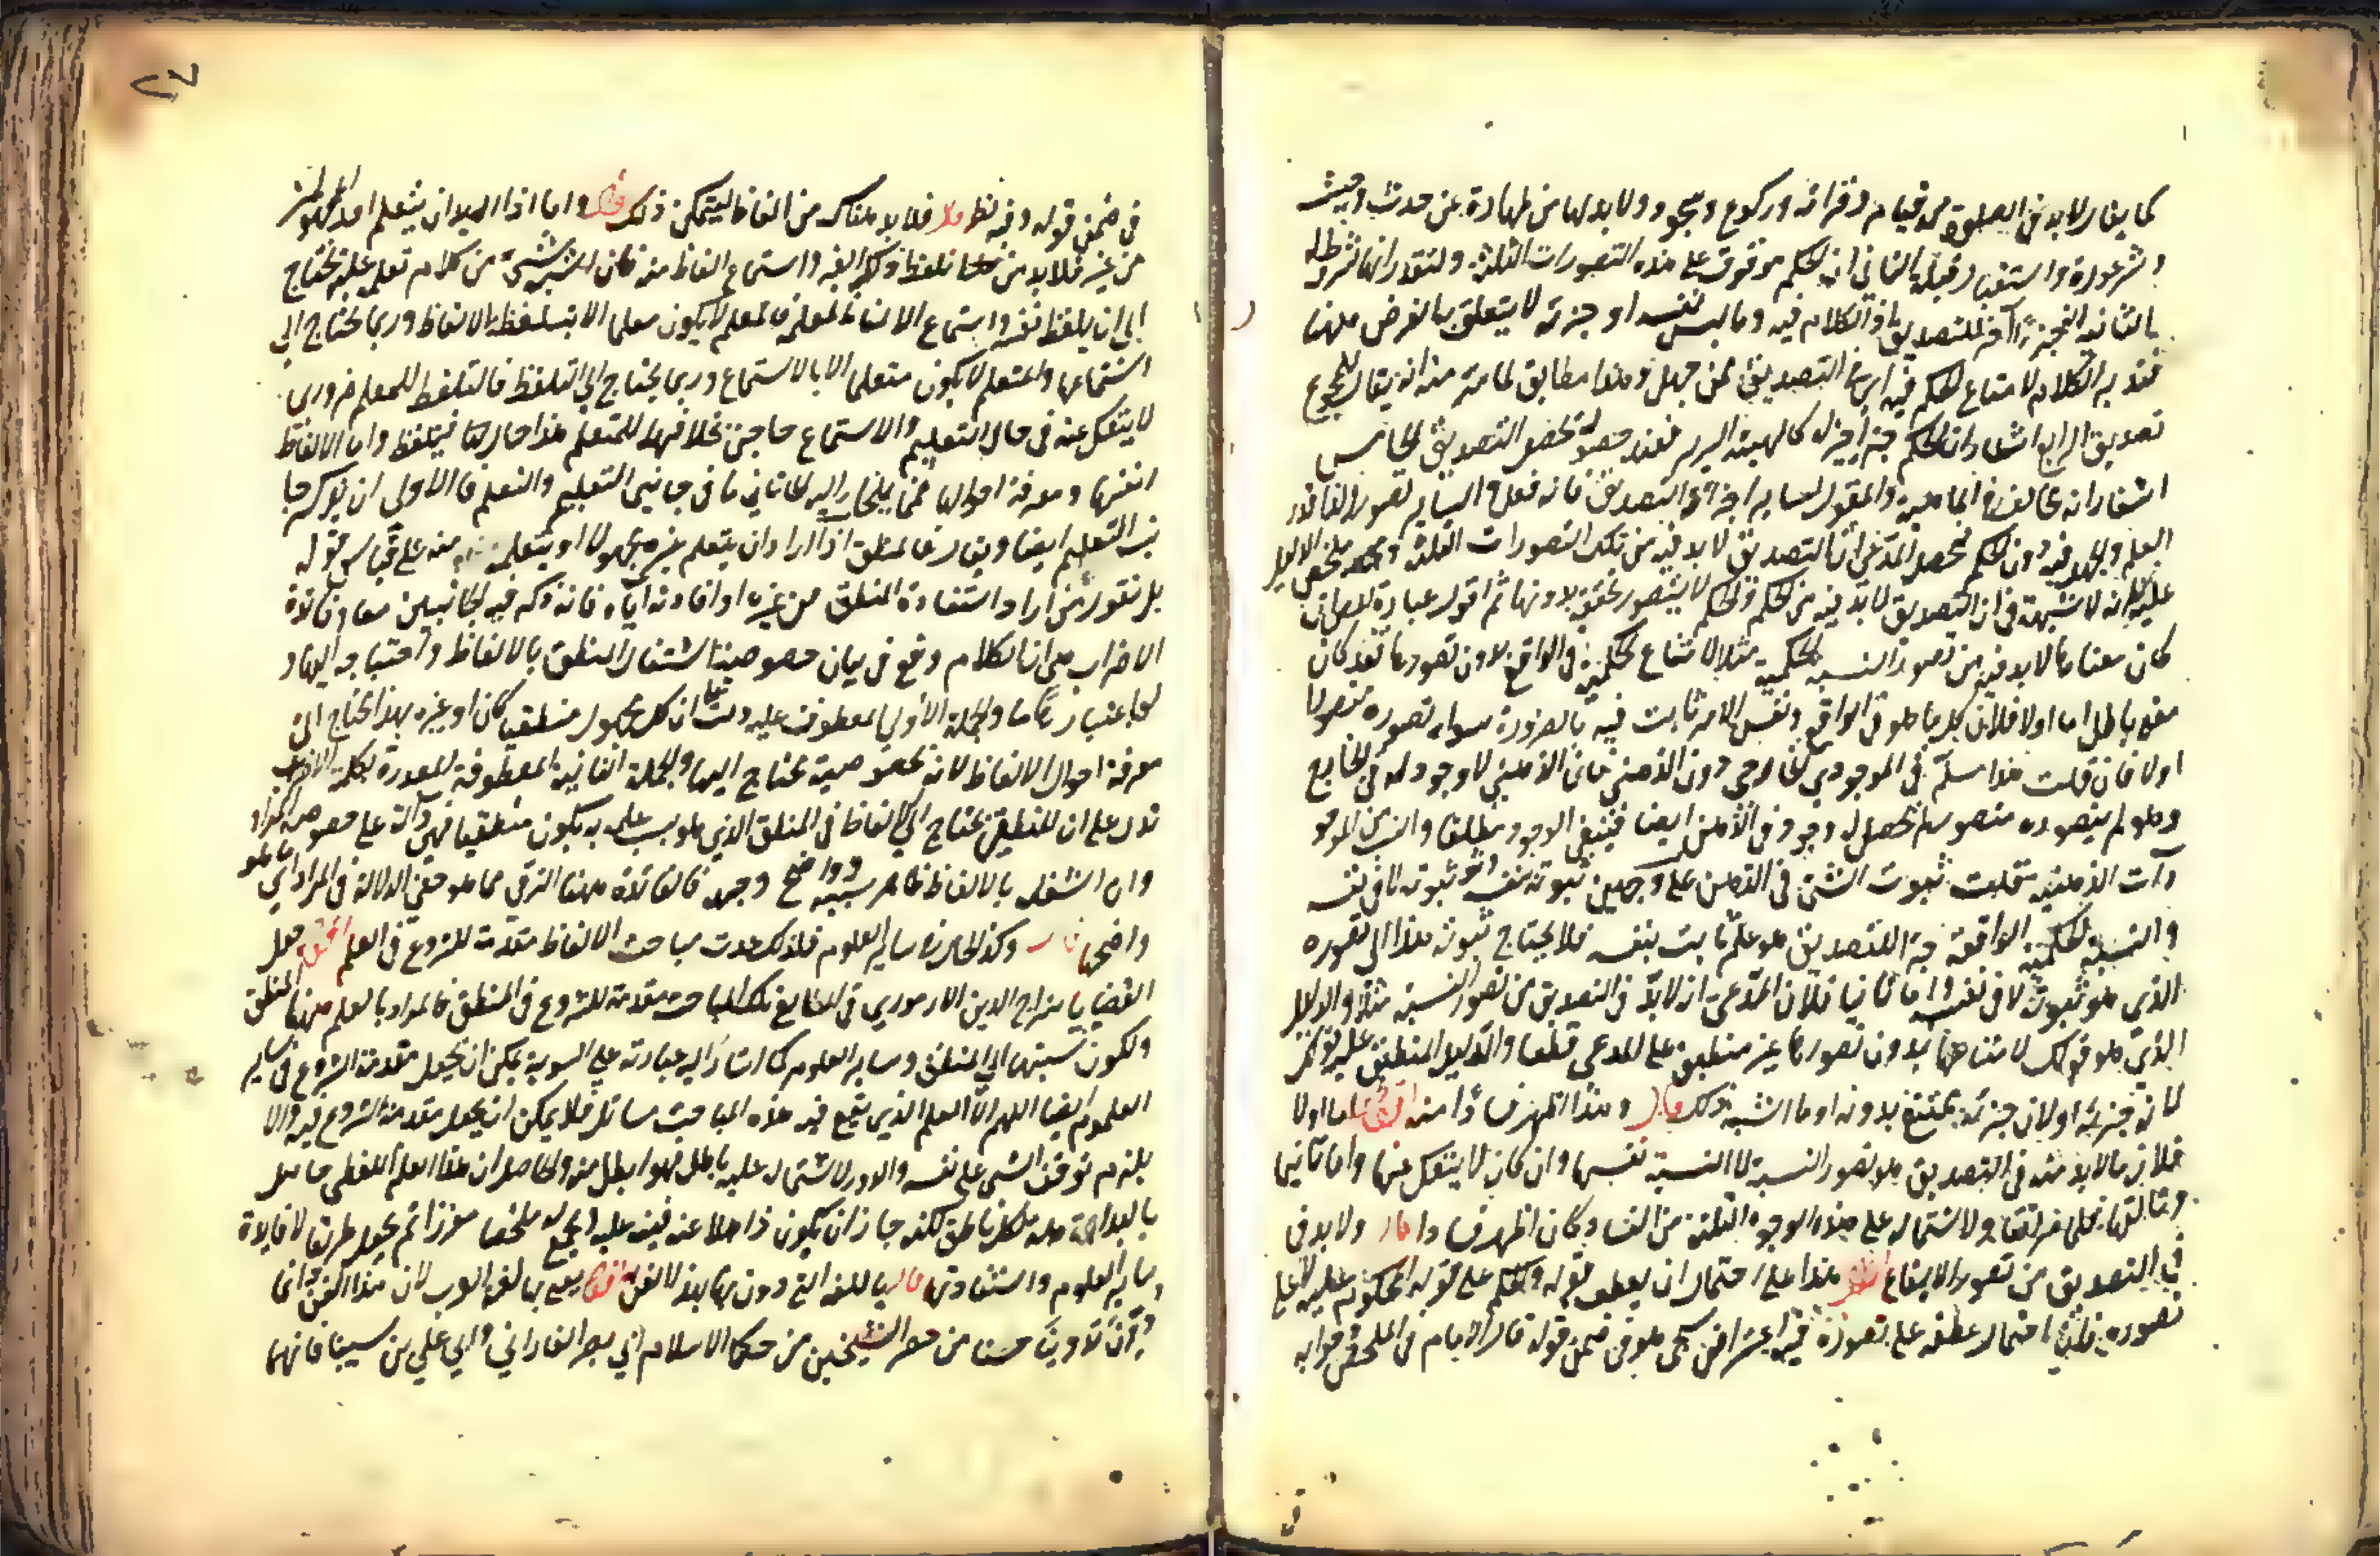 كما يقال لابد في الصلوة من قيام وقرائة وركوع وسجود ولابد لها من طهارة عن حدث وخبث
وستر عورة واستقبال قبلة الثاني ان الحكم موقوف على هذه التصورات الثلثة ولتقدر انها شرط له
بالثانية جزءا آخر للتصديق اذ الكلام فيه وما ليس نفسه او جزئه لا يتعلق به الغرض ههنا
فقد به الكلام لامتناع الحكم فيه اي في التصديق ممن جهل وهذا مطابق لما مر منه انه يقال للمجموع
تصديق الرابع اشعار وان الحكم جزء اخير له كالهيئة للسرير فعند حصوله تحصل التصديق الخامس
اشعار انه مخالف في الماهية والمقولة لساير اجزاء التصديق فانه فعل والساير تصور والفاقد
العلم والجهل فيه دون الحكم فمحصل المدعى ان التصديق لابد فيه من تلك التصورات الثلث ومحصل ملخص الدليل
عليه انه لا شبهة في ان التصديق لابد فيه من الحكم والحكم لا يتصور تحققه بدونها ثم اقول عبارة المص ان
كان معناه انه لابد فيه من تصور النسبة الحكمية مثلا لامتناع الحكم في الواقع بدون تصورها فقد كان
فهو باطل اما اولا فلان كل ما هو في الواقع ونفس الامر ثابت فيه بالضرورة سواء تصوره متصور اولا
اولا فان قلت هذا مسلم في الموجود الخارجي دون الذهني فان الذهني لا وجود له في الخارج
وهو لم يتصوره متصور لم يحصل له وجود في الذهن ايضا فينتفي الوجود مطلقا والنسب من الموجو
دات الذهنية قلت ثبوت الشيء في الذهن على وجهين ثبوته بنفسه وثبوته لا في نفسه
والنسبة الحكمية الواقعة جزء التصديق هو علم ثابت بنفسه فلا يحتاج ثبوته هذا الى تصوره
الذي هو ثبوته لا في نفسه واما ثانيا فلان المدعى انه لابد في التصديق من تصور النسبة مثلا والدليل
الذي هو قولك لامتناعها بدون تصورها غير منطبق على المدعى قطعا والدليل المنطبق عليه قولك
لانه جزئه اولان جزئه يمتنع بدونه او ما اشبه ذلك قال وهذا اظهر فسادا منه اقول اما اولا
فلان ما لابد منه في التصديق هو تصور النسبة لا النسبة نفسها وان كان لا ينفك عنها واما ثانيا
وثالثا فعلى ولاشتماله على هذه الوجوه الثلثة من الفساد كان اظهر فسادا قال ولابد في
في التصديق من تصور الايقاع اقول هذا على احتمال ان يعطف قوله والحكم على قوله المحكوم عليه لا على
تصوره فان احتمال عطفه على تصوره فيه اعتراض سيجيء هو في ضمن قوله قال الامام في الملخص وجوابه
في ضمن قوله وفيه نظر قال فلابد هناك من الفاظ ليتمكن ذلك اقول واما اذا اريد ان يتعلم احد مجهولا
من غيره فلابد من تلفظ ذلك الغير واستماع الفاظ منه فان من كلام تعلم عليه يحتاج
الى ان يلفظ نفسه واستماع الالفاظ لمعلمه فالمعلم لا يكون معلما الا بتلفظ الالفاظ وربما يحتاج الى
استماعها والمتعلم لا يكون متعلما الا بالاستماع وربما يحتاج الى التلفظ فالتلفظ للمعلم ضروري
لا ينفك عنه في حال التعليم والاستماع حاجتي بخلافهما للمتعلم هذا حال فيتلفظ واما الالفاظ
انفسها ومعرفة احوالها فما يحتاج اليه كالثاني في جانبي التعليم والتعلم فالاولى ان يذكر جا
نب التعليم ايضا ويقال فالمنطقي اذا اراد ان يتعلم غيره مجهولا او يتعلمه منه على قياس قوله
بل نقول من اراد استفادة المنطق من غيره او افادته اياه فانه ذكر فيه الجانبين معا وفائدة
الاضراب هي ان الكلام وقع في بيان خصوصية اشتغال المنطق بالالفاظ واحتياجه اليها و
لها اعتبار ما والجملة الاولى المعطوف عليه دلت ان كل مجهول منطقيا كان او غيره بهذا يحتاج الى
معرفة احوال الالفاظ لانه بخصوصية يحتاج اليها والجملة الثانية المعطوفة المصدرة بكلمة الاضراب
تدل على ان المنطقي يحتاج الى الالفاظ في المنطق الذي هو بسبب علمه به يكون منطقيا فهي دالة على خصوص المراد
وان اشتغل بالالفاظ ظاهر سببه وواضح وجهه فالفائدة ههنا الترقي مما هو خفي الدلالة في المراد الى ما هو
واضحها قال وكذا الحال في ساير العلوم فلذلك عدت مباحث الالفاظ مقدمة للشروع في العلم اقول جعل
القضايا سراج الدين الارموري في المطالع تلك المباحث مقدمة للشروع في المنطق فالمراد بالعلم ههنا المنطق
ولكون نسبتها الى المنطق وساير العلوم كما اشار اليه عبارته على السوية يمكن ان يجعل مقدمة الشروع في ساير
العلوم ايضا اللهم الا العلم الذي يقع فيه هذه المباحث مسائل فلا يمكن ان يجعل مقدمة الشروع فيه والا
يلزم توقف الشيء على نفسه والدور لاشتماله عليه باطل فهو ابطل منه والحاصل ان هذا العلم اللفظي حاصل
بالبداهة كل ناطق لكنه جاز ان يكون ذاهلا عنه فينبه عليه ويجعل ملخصا مفرزا ثم يجعل طريقا لافادة
ساير العلوم واستفادتها قال باللغة التي دون بها هذا الفن اقول يعني بها لغة العرب لان هذا الفن وانما
دون تدوينا حسنا من حضر الشيخين من حكماء الاسلام ابي نصر الفارابي وابي علي بن سينا فانهما